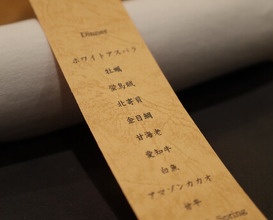 Dinner
ホワイトアスパラ
牡蠣
北寄貝
金目鯛
甘海老
愛知牛
白魚
アマゾンカカオ
Spring